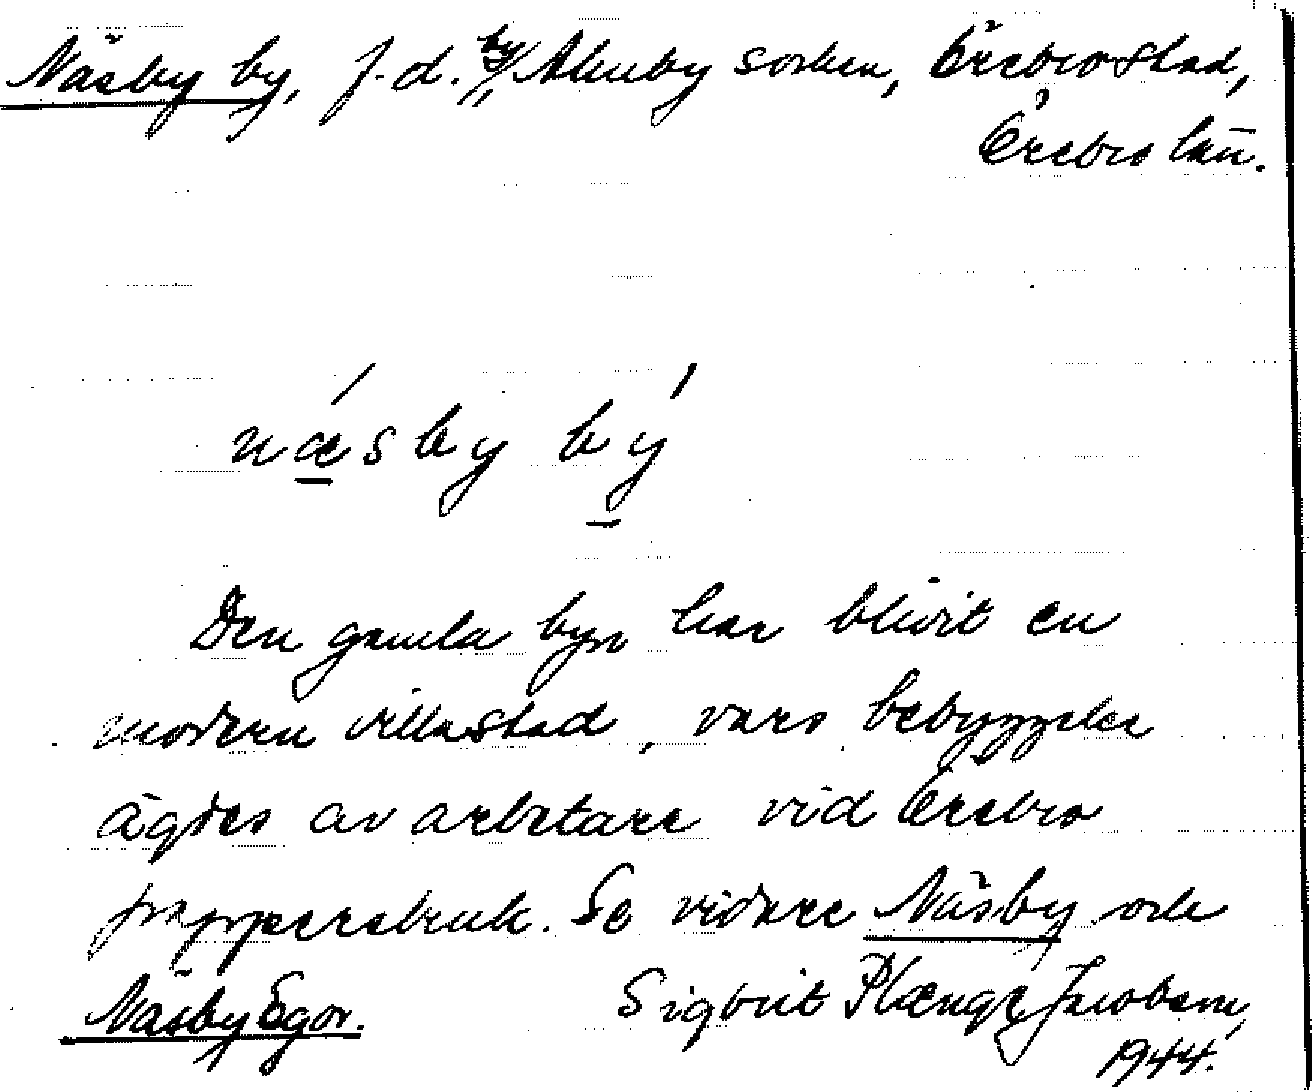 Näsby by, f.d. by, Almby socken, Örebro stad,
Örebro län.
næ´sby bý
Den gamla byn har blivit en
modern villastad, vars bebyggelse
ägdes av arbetare vid Örebro
pappersbruk. Se vidare Näsby och
Näsby Egor. Sigbrit Plænge Jacobson,
1944.